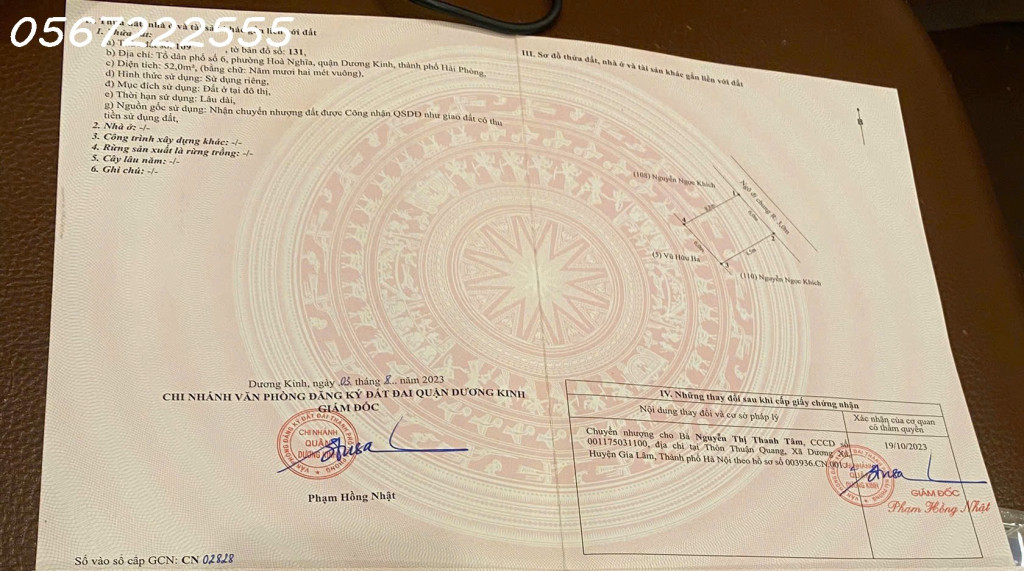 0567222555
nhà ở và tài sản khác gắn liền với đất
1. Thửa đất:
a) Thửa đất số: 109 , tờ bản đồ số: 131,
b) Địa chỉ: Tổ dân phố số 6, phường Hoà Nghĩa, quận Dương Kinh, thành phố Hải Phòng,
c) Diện tích: 52,0m², (bằng chữ: Năm mươi hai mét vuông),
d) Hình thức sử dụng: Sử dụng riêng,
đ) Mục đích sử dụng: Đất ở tại đô thị,
e) Thời hạn sử dụng: Lâu dài,
g) Nguồn gốc sử dụng: Nhận chuyển nhượng đất được Công nhận QSDĐ như giao đất có thu
tiền sử dụng đất,
2. Nhà ở: -/-
3. Công trình xây dựng khác: -/-
4. Rừng sản xuất là rừng trồng: -/-
5. Cây lâu năm: -/-
6. Ghi chú: -/-
III. Sơ đồ thửa đất, nhà ở và tài sản khác gắn liền với đất
B
(108) Nguyễn Ngọc Khích
đi chung R: 3,0m
1
4
2
3
(5) Vũ Hữu Ba
(110) Nguyễn Ngọc Khích
Dương Kinh, ngày 03 tháng 8 năm 2023
CHI NHÁNH VĂN PHÒNG ĐĂNG KÝ ĐẤT ĐAI QUẬN DƯƠNG KINH
GIÁM ĐỐC
CHI NHÁNH
QUẬN
DƯƠNG KINH
Phạm Hồng Nhật
Số vào sổ cấp GCN: CN 02828
IV. Những thay đổi sau khi cấp giấy chứng nhận
Nội dung thay đổi và cơ sở pháp lý
Xác nhận của cơ quan
có thẩm quyền
Chuyển nhượng cho Bà Nguyễn Thị Thanh Tâm, CCCD số
001175031100, địa chỉ tại Thôn Thuận Quang, Xã Dương Xá,
Huyện Gia Lâm, Thành phố Hà Nội theo hồ sơ số 003936.CN.001
19/10/2023
GIÁM ĐỐC
Phạm Hồng Nhật